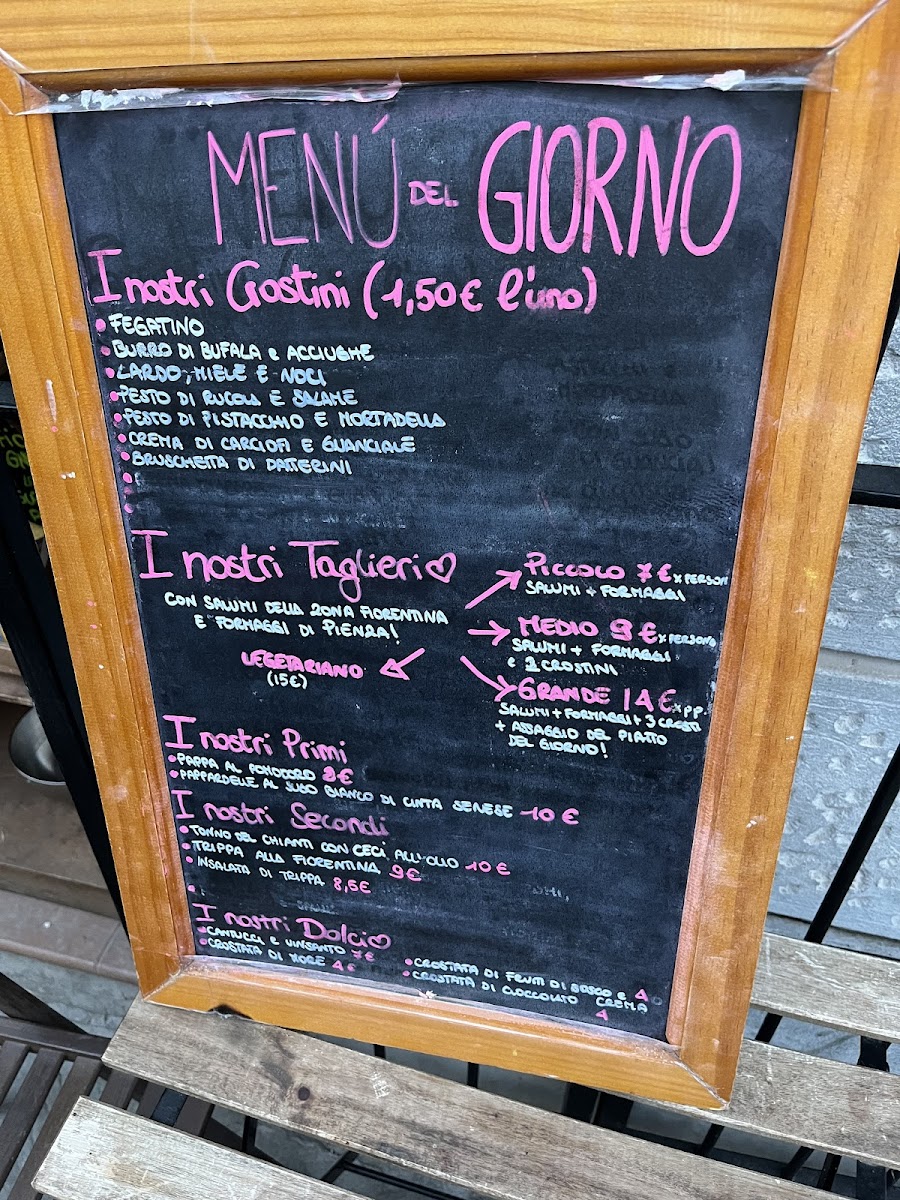 MENÚ DEL GIORNO
I nostri Crostini (1,50€ l'uno)
• FEGATINO
• BURRO DI BUFALA e ACCIUGHE
• LARDO, MIELE E NOCI
• PESTO DI RUCOLA E SALAME
• PESTO DI PISTACCHIO E MORTADELLA
• CREMA DI CARCIOFI E GUANCIALE
• BRUSCHETTA DI DATTERINI
I nostri Taglieri
CON SALUMI DELLA ZONA FIORENTINA
E FORMAGGI DI PIENZA!
VEGETARIANO
(15€)
PICCOLO 7€ x PERSONA
SALUMI + FORMAGGI
MEDIO 9€ x PERSONA
SALUMI + FORMAGGI
e 2 CROSTINI
GRANDE 14€ x p.p.
SALUMI + FORMAGGI + 3 CROSTI
+ ASSAGGIO DEL PIATTO
DEL GIORNO!
I nostri Primi
• PAPPA AL POMODORO 9€
• PAPPARDELLE AL SUGO BIANCO DI CINTA SENESE 10€
I nostri Secondi
• TONNO DEL CHIANTI CON CECI ALL'OLIO 10€
• TRIPPA ALLA FIORENTINA 9€
• INSALATA DI TRIPPA 8,5€
I nostri Dolci
• CANTUCCI E VINSANTO 7€
• CROSTATA DI MORE 4€
• CROSTATA DI FRUTTI DI BOSCO e 4
• CROSTATA DI CIOCCOLATO CREMA
4